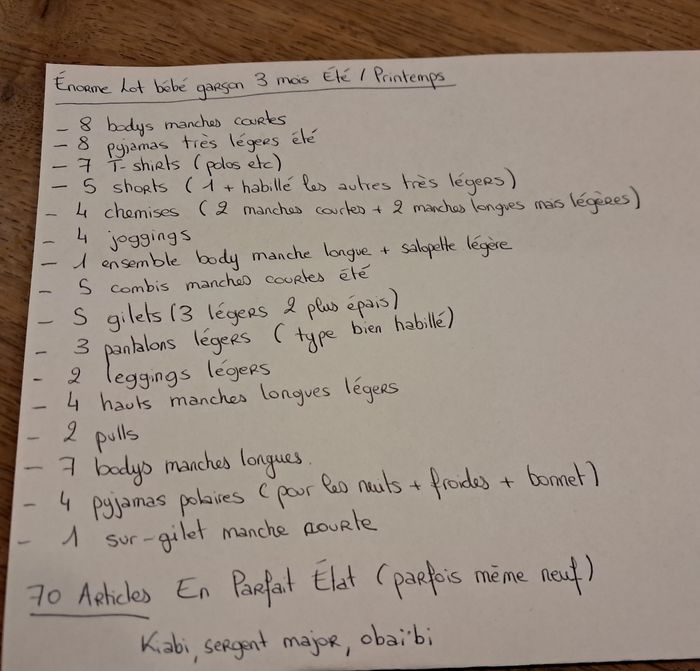 Énorme Lot bébé garçon 3 mois Été / Printemps
- 8 bodys manches courtes
- 8 pyjamas très légers été
- 7 T-shirts (polos etc)
- 5 shorts (1 + habillé les autres très légers)
- 4 chemises (2 manches courtes + 2 manches longues mais légères)
- 4 joggings
- 1 ensemble body manche longue + salopette légère
- 5 combis manches courtes été
- 5 gilets (3 légers 2 plus épais)
- 3 pantalons légers (type bien habillé)
- 2 leggings légers
- 4 hauts manches longues légers
- 2 pulls
- 7 bodys manches longues.
- 4 pyjamas polaires (pour les nuits + froides + bonnet)
- 1 sur-gilet manche courte
70 Articles En Parfait État (parfois même neuf)
Kiabi, sergent major, obaïbi